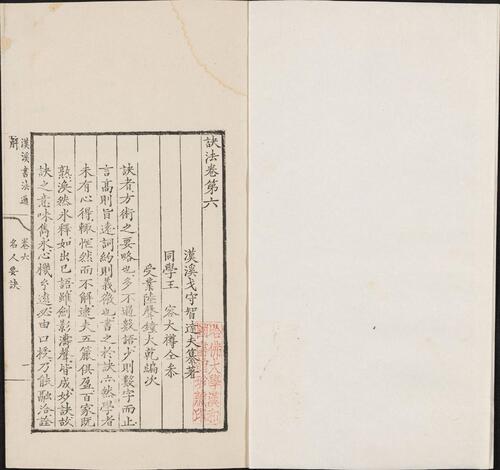 訣法卷第六
漢溪戈守智達夫纂著
同學王 容大樽仝參
受業陸聲鐘大乾編次
訣者方術之要略也多不過數語少則數字而止
言高則旨遠詞約則義微也書之於訣亦然學者
未有心得輒恇然而不解逮夫五簏俱盈百家既
熟渙然氷釋如出已語雖劍影濤聲皆成妙訣故
訣之意味雋永心機兮遠必由口授乃能融洽詮
漢溪書法通解 卷六 名人要訣
哈佛大學漢和
圖書館珍藏印